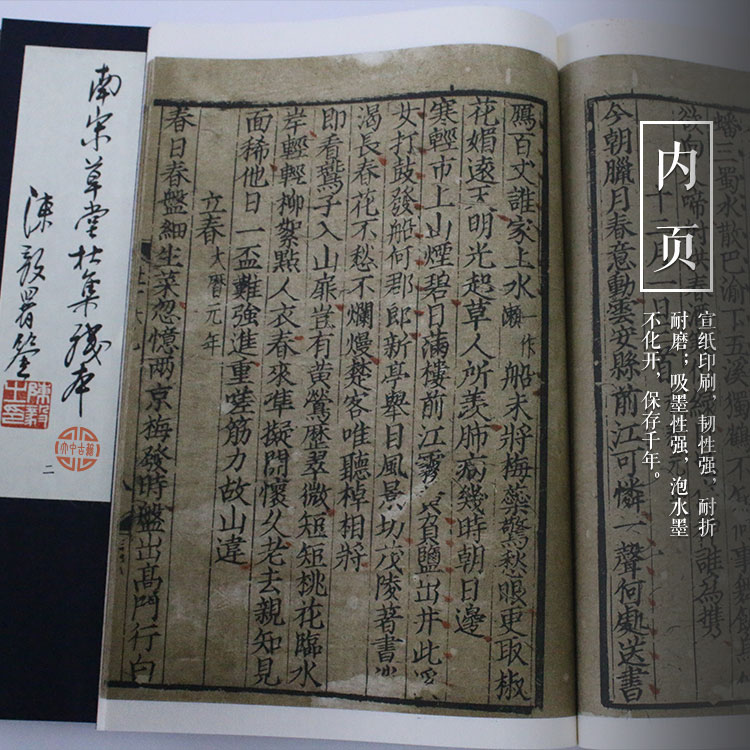 南宋草堂杜集殘本
陳毅署簽
二
内页
宣纸印刷，韧性强，耐折
耐磨；吸墨性强，泡水墨
不化开，保存千年。
蟠三蜀水散巴渝下 溪獨鶴
今朝臘月春意動雲安縣前江可憐一聲何處送書
鴈百丈誰家上水一作瀨船未將梅蘂驚愁眼更取椒
花媚遠天明光起草人所羨肺病幾時朝日邊
寒輕市上山煙碧日滿樓前江霧 負鹽出井此
女打鼓發船何郡郎新亭舉目風景切茂陵著書
渴長春花不愁不爛熳楚客唯聽棹相將
即看鷰子入山扉豈有黃鶯歷翠微短短桃花臨水
岸輕輕柳絮點人衣春來準擬開懷久老去親知見
面稀他日一盃難強進重嗟筋力故山違
立春大曆元年
春日春盤細生菜忽憶两京梅發時盤出高門行白